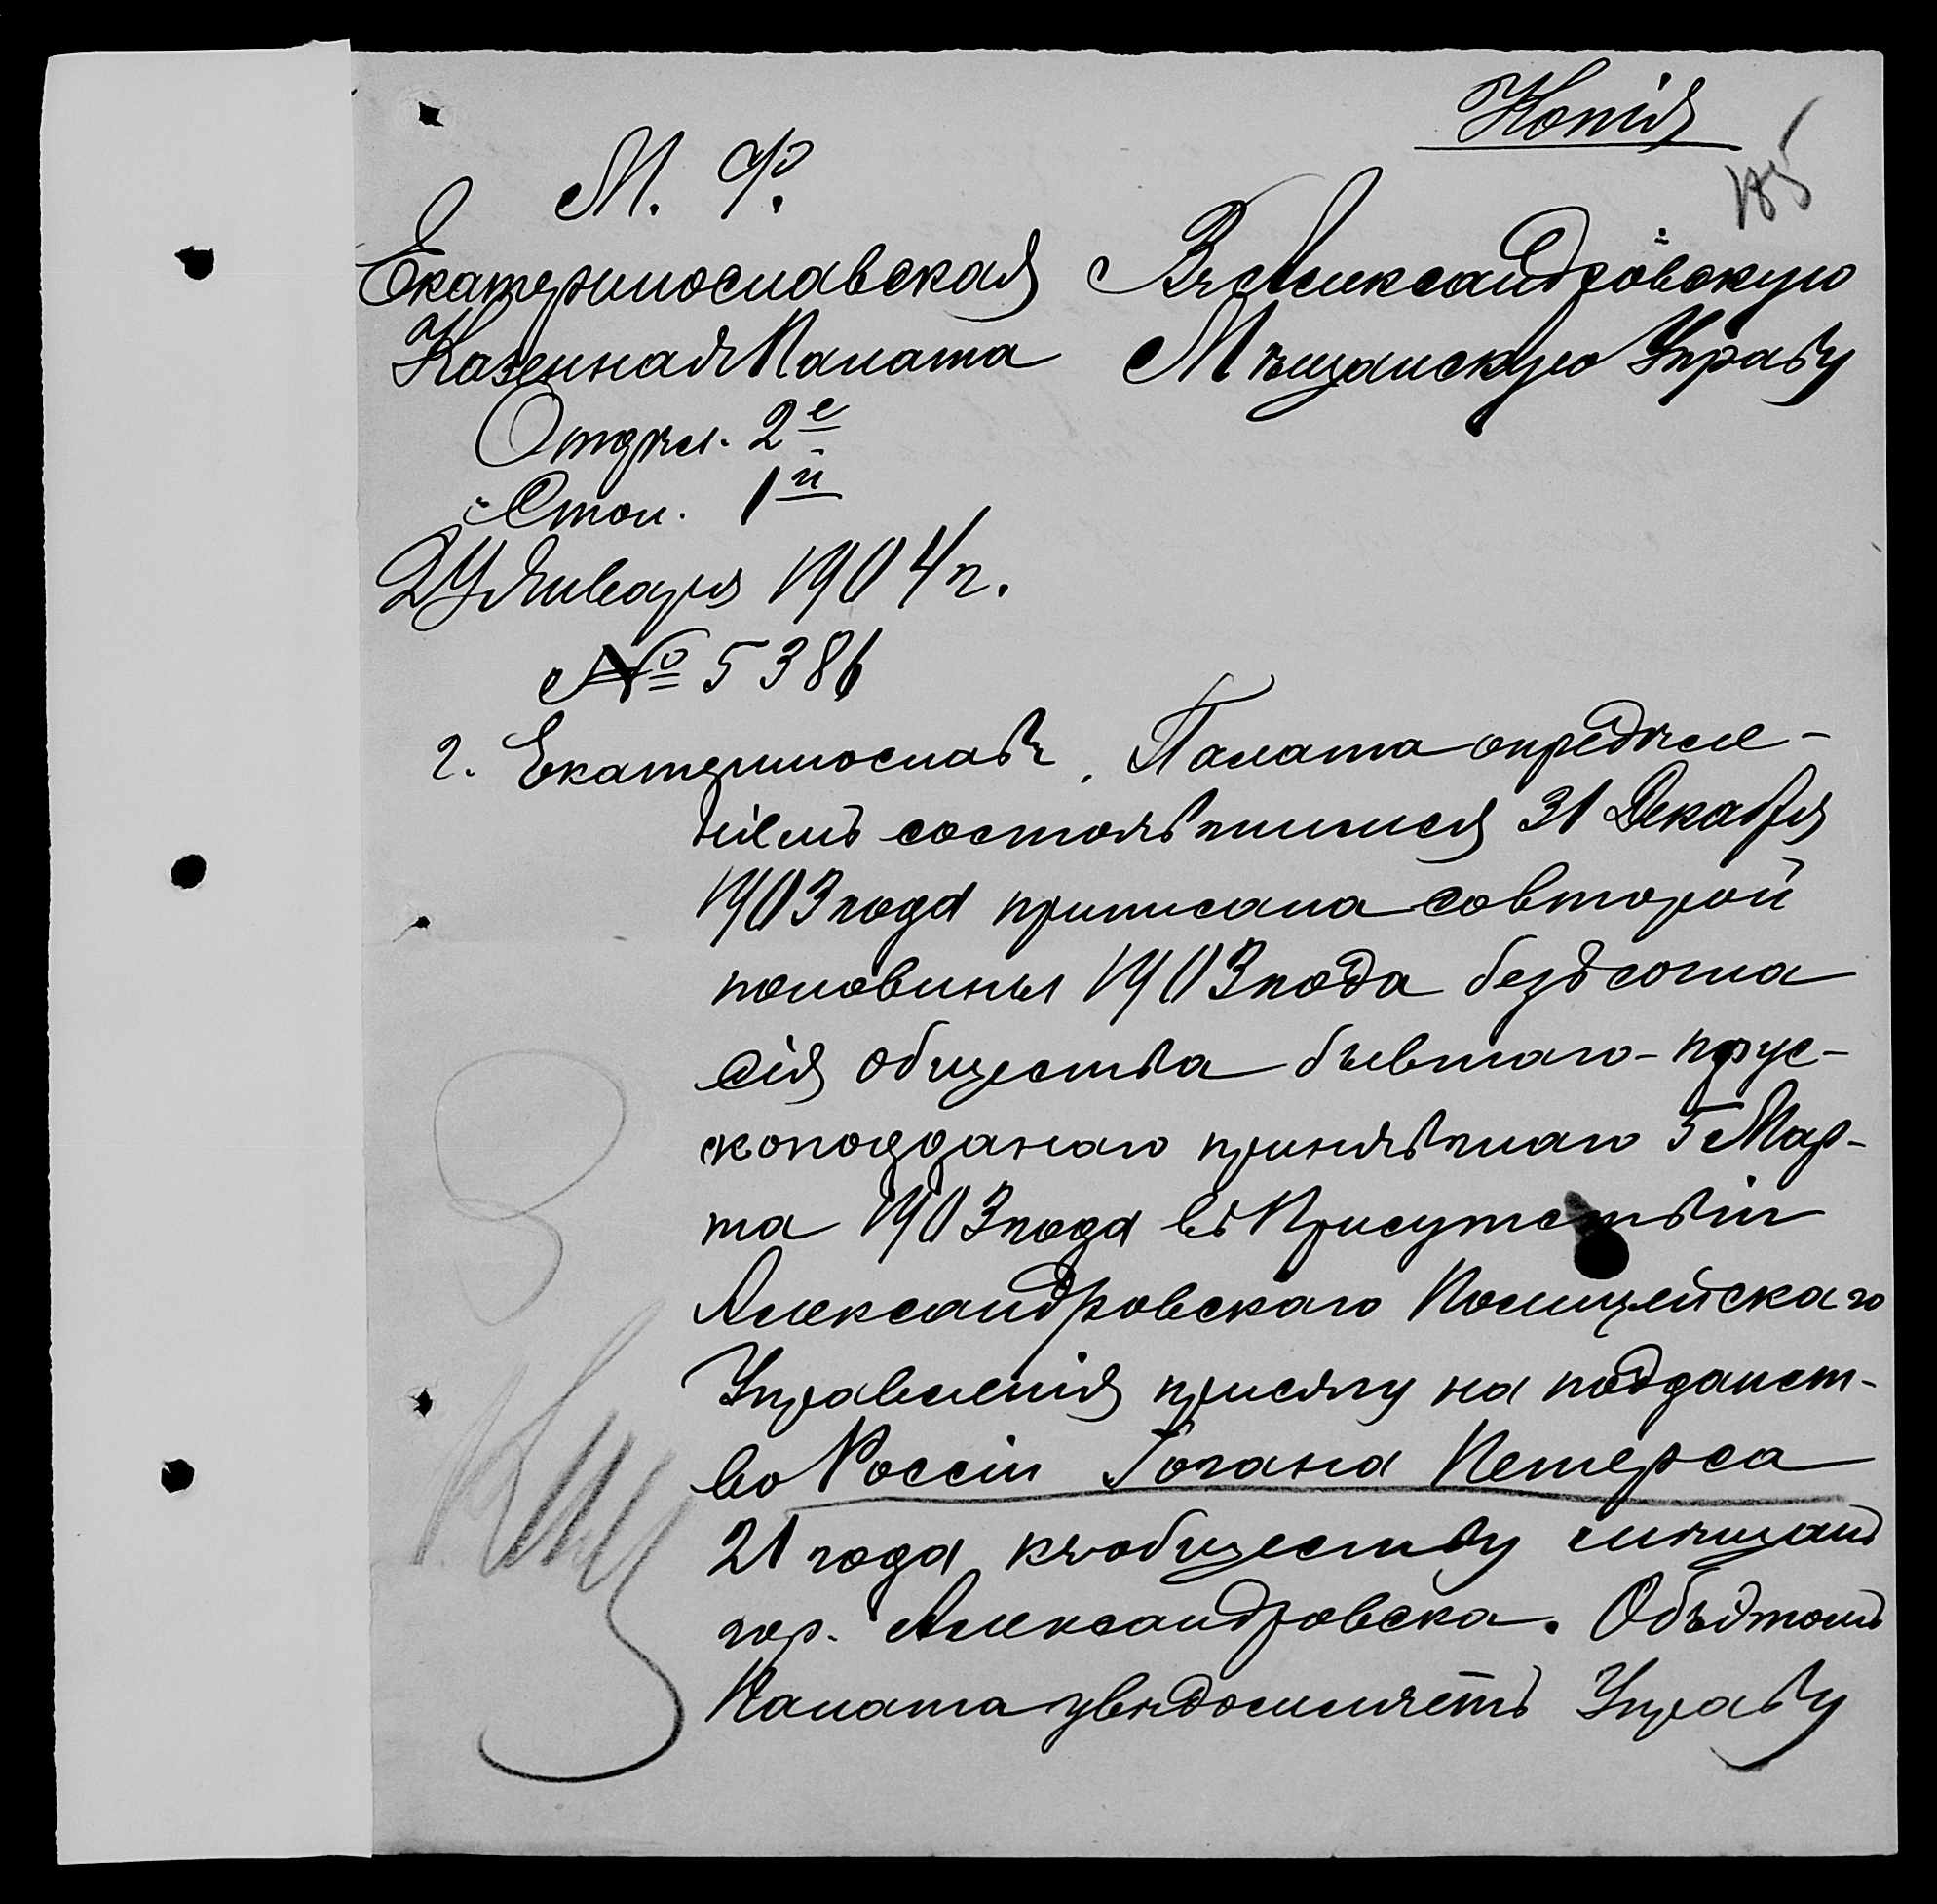 Копія
185
М. Ф.
Екатеринославская
Казенная Палата
Отдѣл. 2е
Стол. 1й
Января 1904 г.
№ 5386
г. Екатеринославъ.
Въ Александровскую
Мѣщанскую Управу
Палата опредѣле-
ніемъ состоявшимся 31 Декабря
1903 года приписала со второй
половины 1903 года безъ согла
сія общества бывшаго прус-
скоподданаго принявшаго 5 Мар-
та 1903 года въ Присутствіи
Александровскаго Полицейскаго
Управленія присягу на подданст-
во Россіи Іогана Петерса
21 года къ обществу мѣщанъ
гор. Александровска. Объ этомъ
Палата увѣдомляетъ Управу